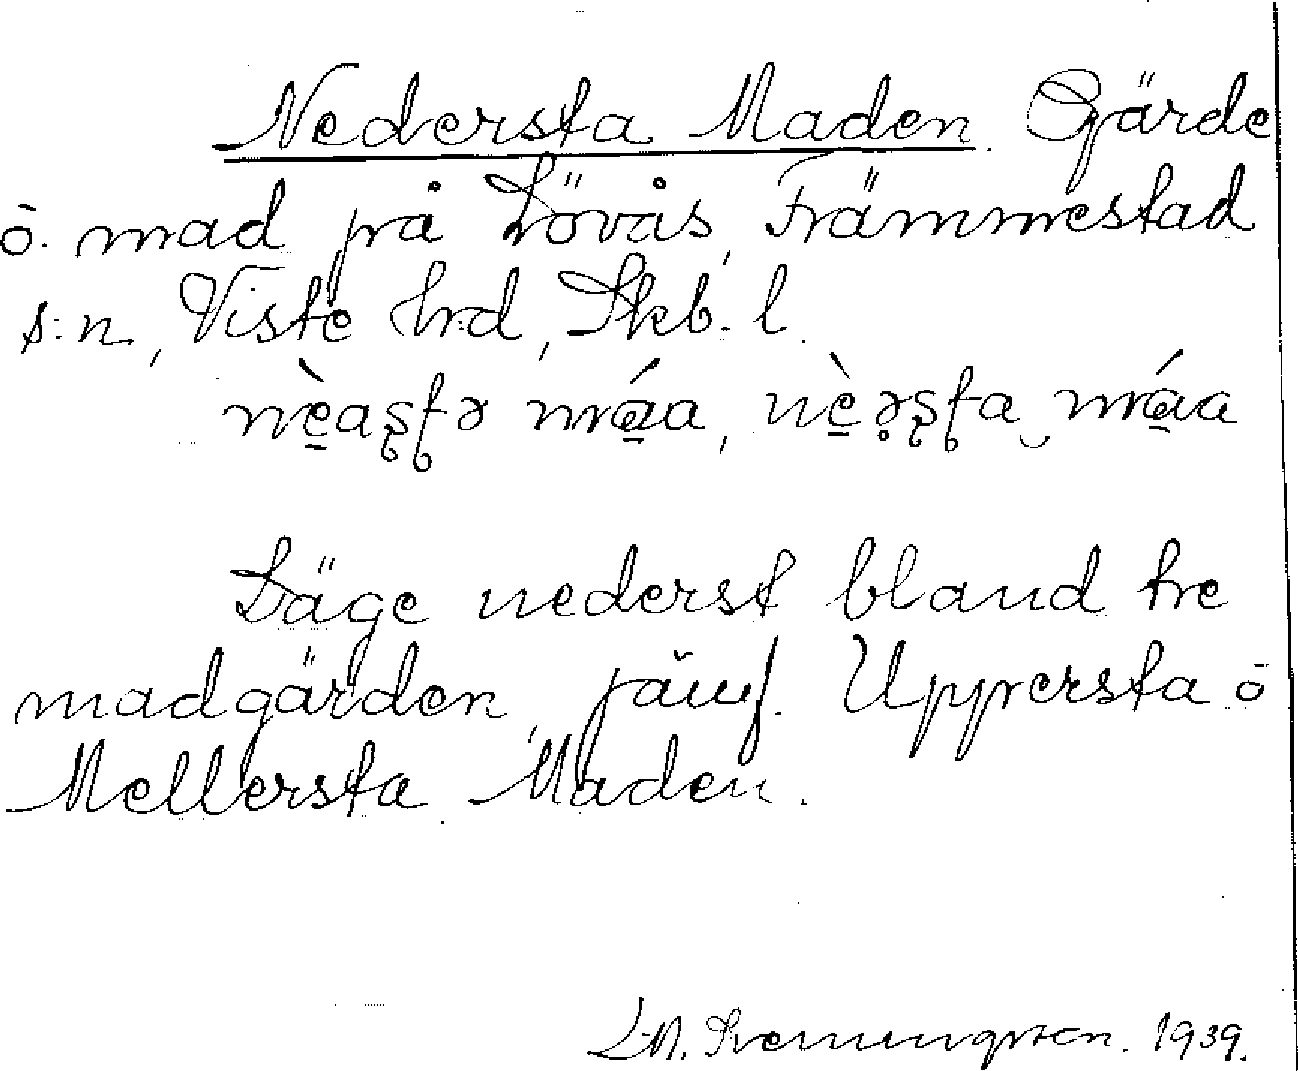 Nedersta Maden. Gärde
o. mad på Lövås, Främmestad
s:n, Viste hrd, Skb. l.
nè̠aʂʈə má̠a, nè̠ə̣ʂʈa‿má̠a
Läge nederst bland tre
madgärden, jämf. Uppersta o
Mellersta Maden.
1939.